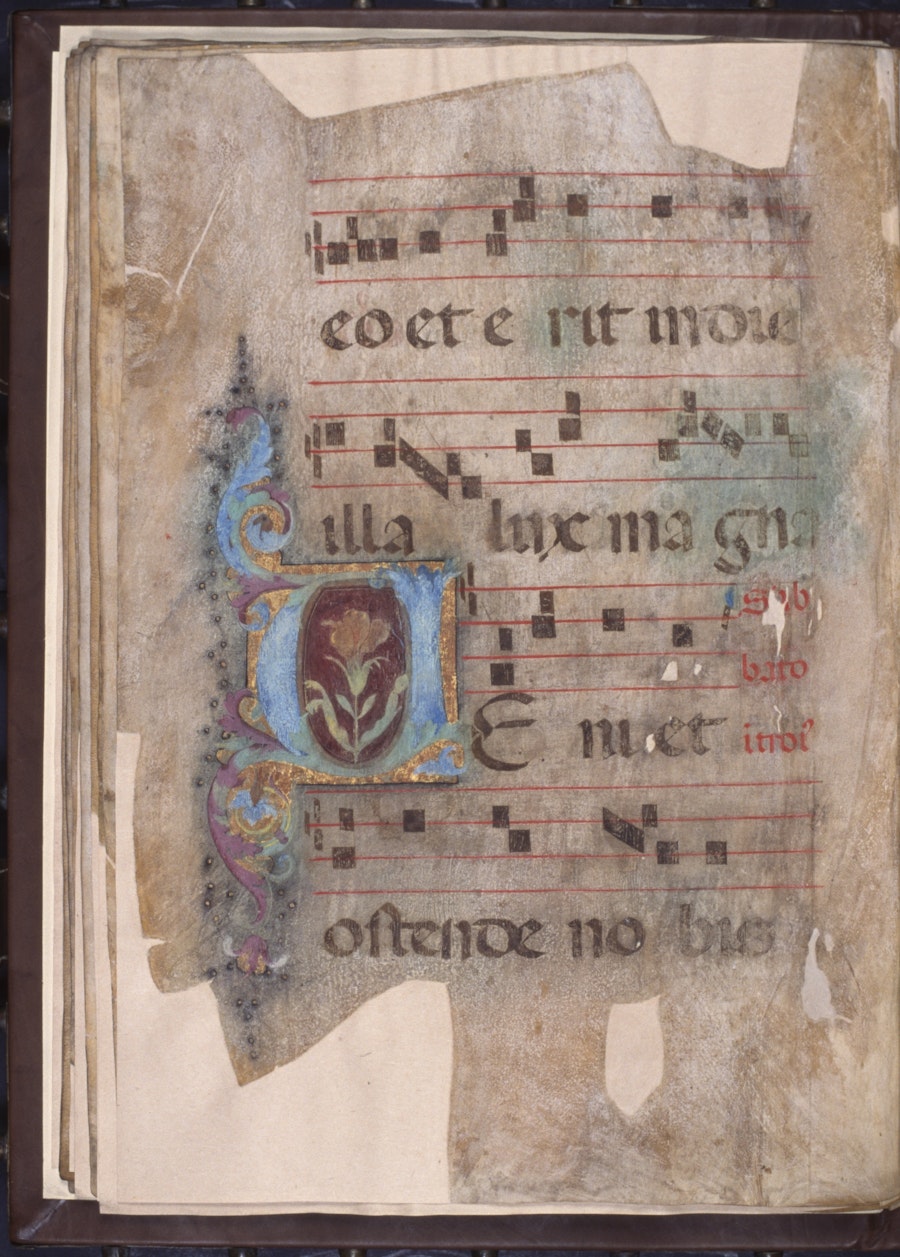 eo et e rit in die
illa lux magna
Sab
bato
introi᾽
VE ni et
ostende no bis